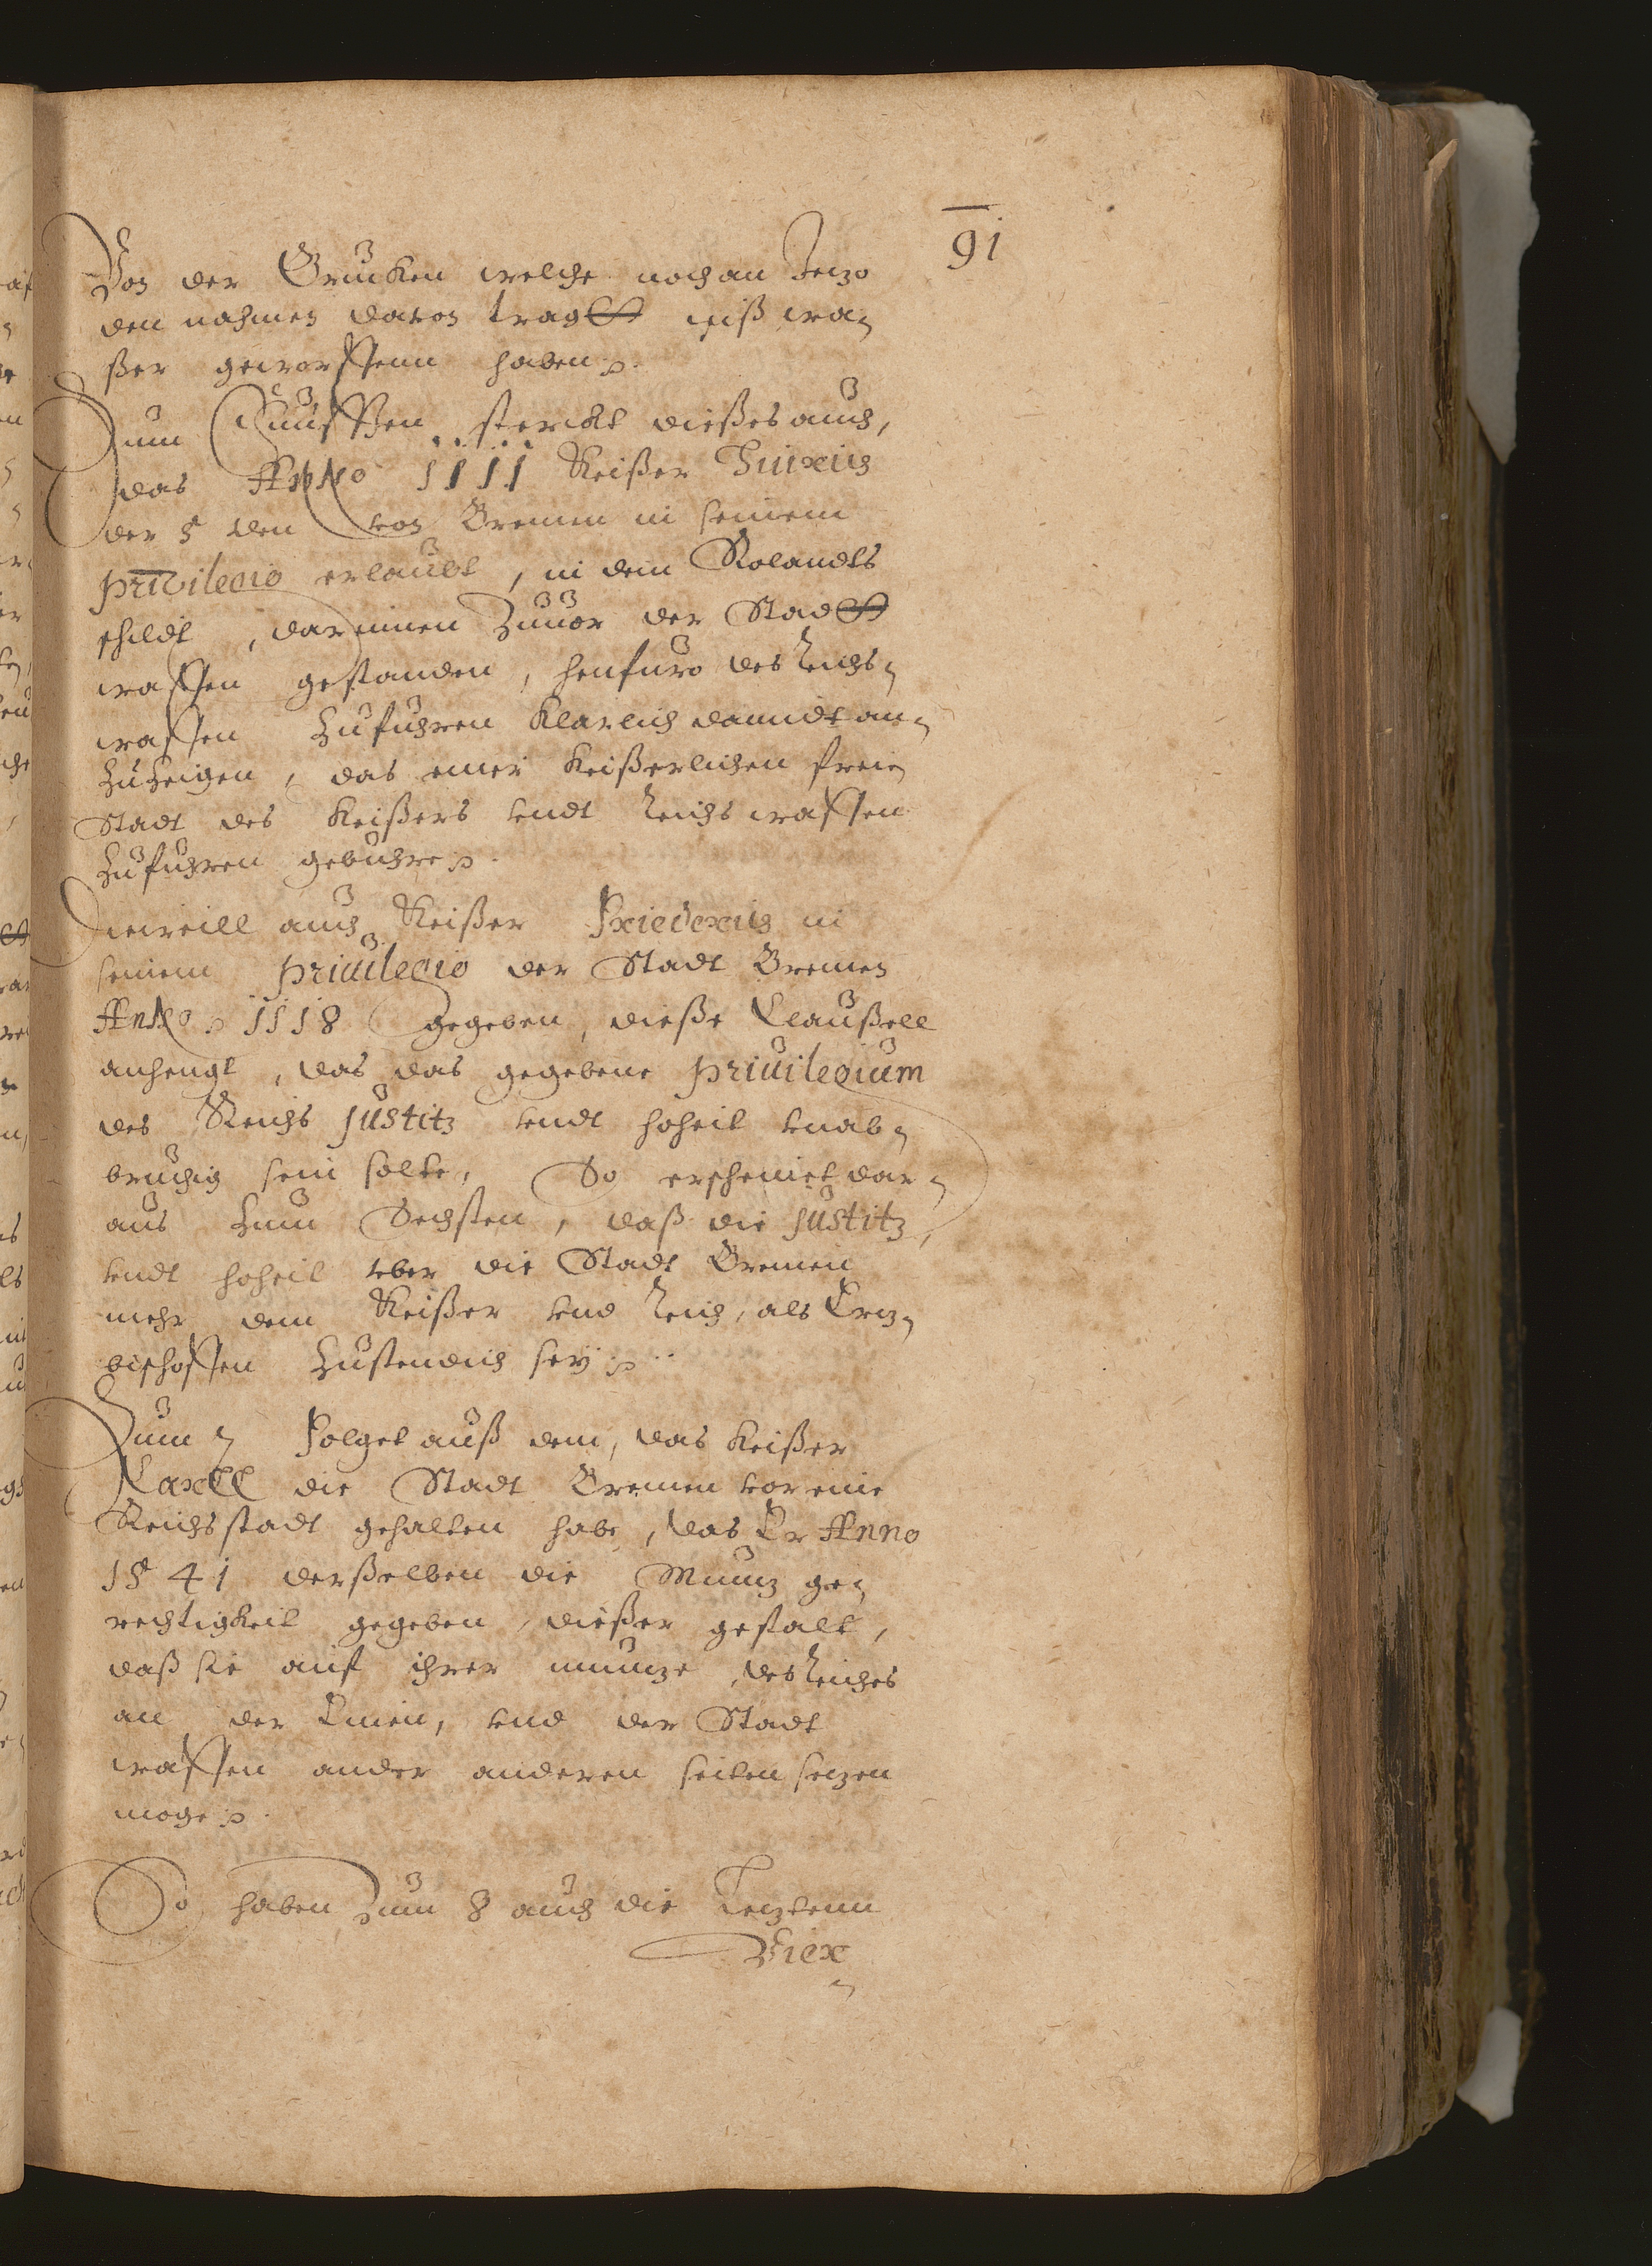 91
Von der Brucken welche noch an Jetzo
den nahmen davon tragtt inß wa¬
ßer geworffenn haben.
Zum Funfften sterckt dießes auch,
das Anno 1111 Keißer Hinrich
der 5 den von Bremen in seinem
privilegio erlaubt, in dem Rolandts
schildt, darinnen Zuuor der Stadtt
waffen gestanden, henfuro des Reichs¬
waffen zufuhren klarlich damidt an¬
zuzeigen, das einer Keißerlichen freie
Stadt des Keißers vndt Reichs waffen
zufuhren gebuhre.
Dieweill auch Keißer Friederich in
seinem priuilegio der Stadt Bremen
Anno. 1118 gegeben, dieße Claußell
anhengt, das das gegebene priuilegium
des Reichs Justitz vndt hoheit vnab¬
bruchig sein solte, So erscheinet dar¬
aus zum Sechsten, daß die Justitz,
vndt hoheit vber die Stadt Bremen
mehr dem Keißer vnd Reich, als Ertz¬
bischoffen zustendich sey.
Zum 7 Folget auß dem, das Keißer
Carll die Stadt Bremen vor eine
Reichsstadt gehalten habe, das Er Anno
1541 derßelben die Muntz ge¬
rechtigkeit gegeben, dießer gestalt,
daß sie auf ihrer muntze, des Reiches
an der Einen, vnd der Stadt
waffen ander anderen seiten setzen
moge.
So haben Zum 8 auch die Letztenn
Vier